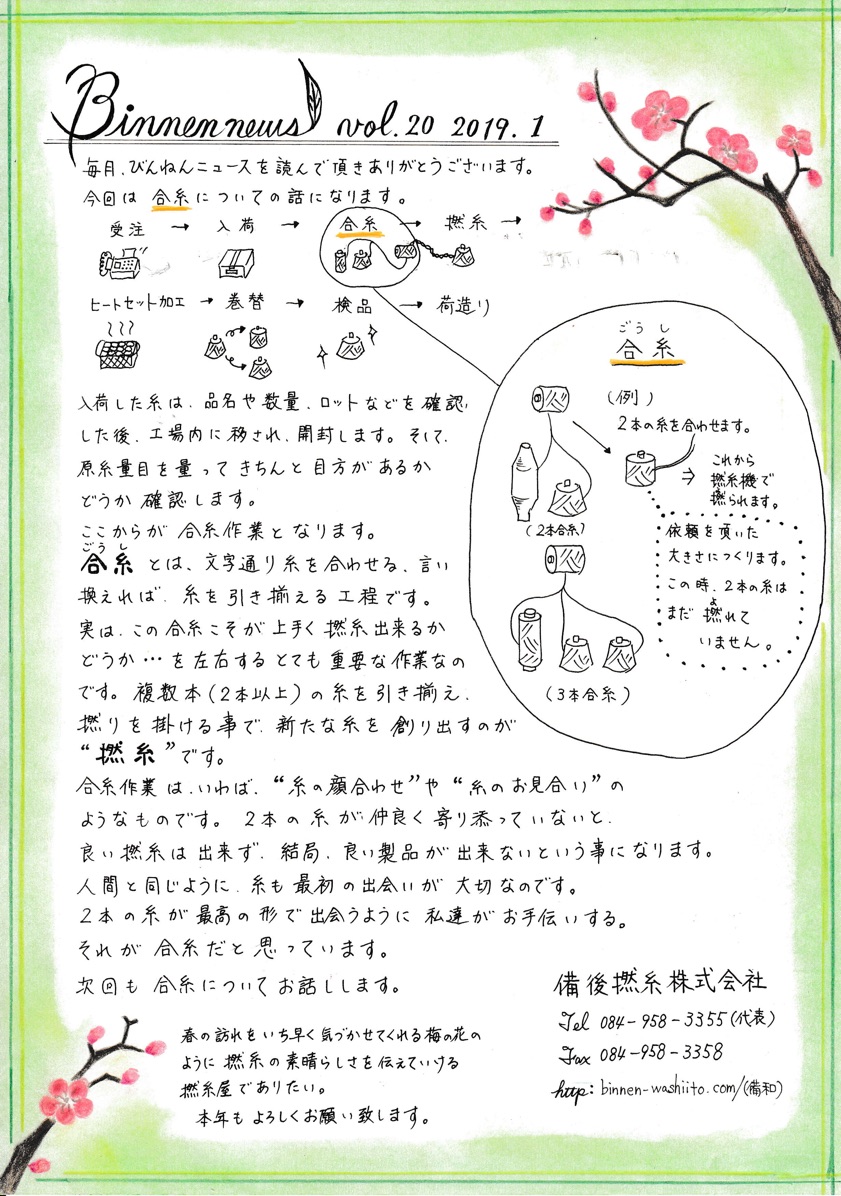 Binnennews vol.20 2019.1
毎月、びんねんニュースを読んで頂きありがとうございます。
今回は 合糸についての話になります。
受注 → 入荷 → 合糸 → 撚糸 →
ヒートセット加工 → 巻替 → 検品 → 荷造り
入荷した糸は、品名や数量、ロットなどを確認
した後、工場内に移され、開封します。そして、
原糸量目を量って きちんと 目方があるか
どうか 確認します。
ここからが 合糸作業となります。
ごうし
合糸 とは、文字通り糸を合わせる、言い
換えれば、糸を引き揃える工程です。
実は、この合糸こそが上手く撚糸出来るか
どうか…を左右するとても重要な作業なの
です。複数本(2本以上)の糸を引き揃え、
撚りを掛ける事で、新たな糸を創り出すのが
“撚糸”です。
合糸作業は、いわば、“糸の顔合わせ”や“糸のお見合い”の
ようなものです。2本の糸が仲良く寄り添っていないと、
良い撚糸は出来ず、結局、良い製品が出来ないという事になります。
人間と同じように、糸も最初の出会いが大切なのです。
2本の糸が最高の形で出会うように私達がお手伝いする。
それが合糸だと思っています。
次回も合糸についてお話しします。
ごうし
合糸
(例)
2本の糸を合わせます。
⇒ これから
撚糸機で
撚られます。
(2本合糸)
依頼を頂いた
大きさにつくります。
この時、2本の糸は
よ
まだ撚れて
いません。
(3本合糸)
春の訪れをいち早く気づかせてくれる梅の花の
ように撚糸の素晴らしさを伝えていける
撚糸屋でありたい。
本年もよろしくお願い致します。
備後撚糸株式会社
Tel 084-958-3355(代表)
Fax 084-958-3358
http: binnen-washiito.com/(備和)